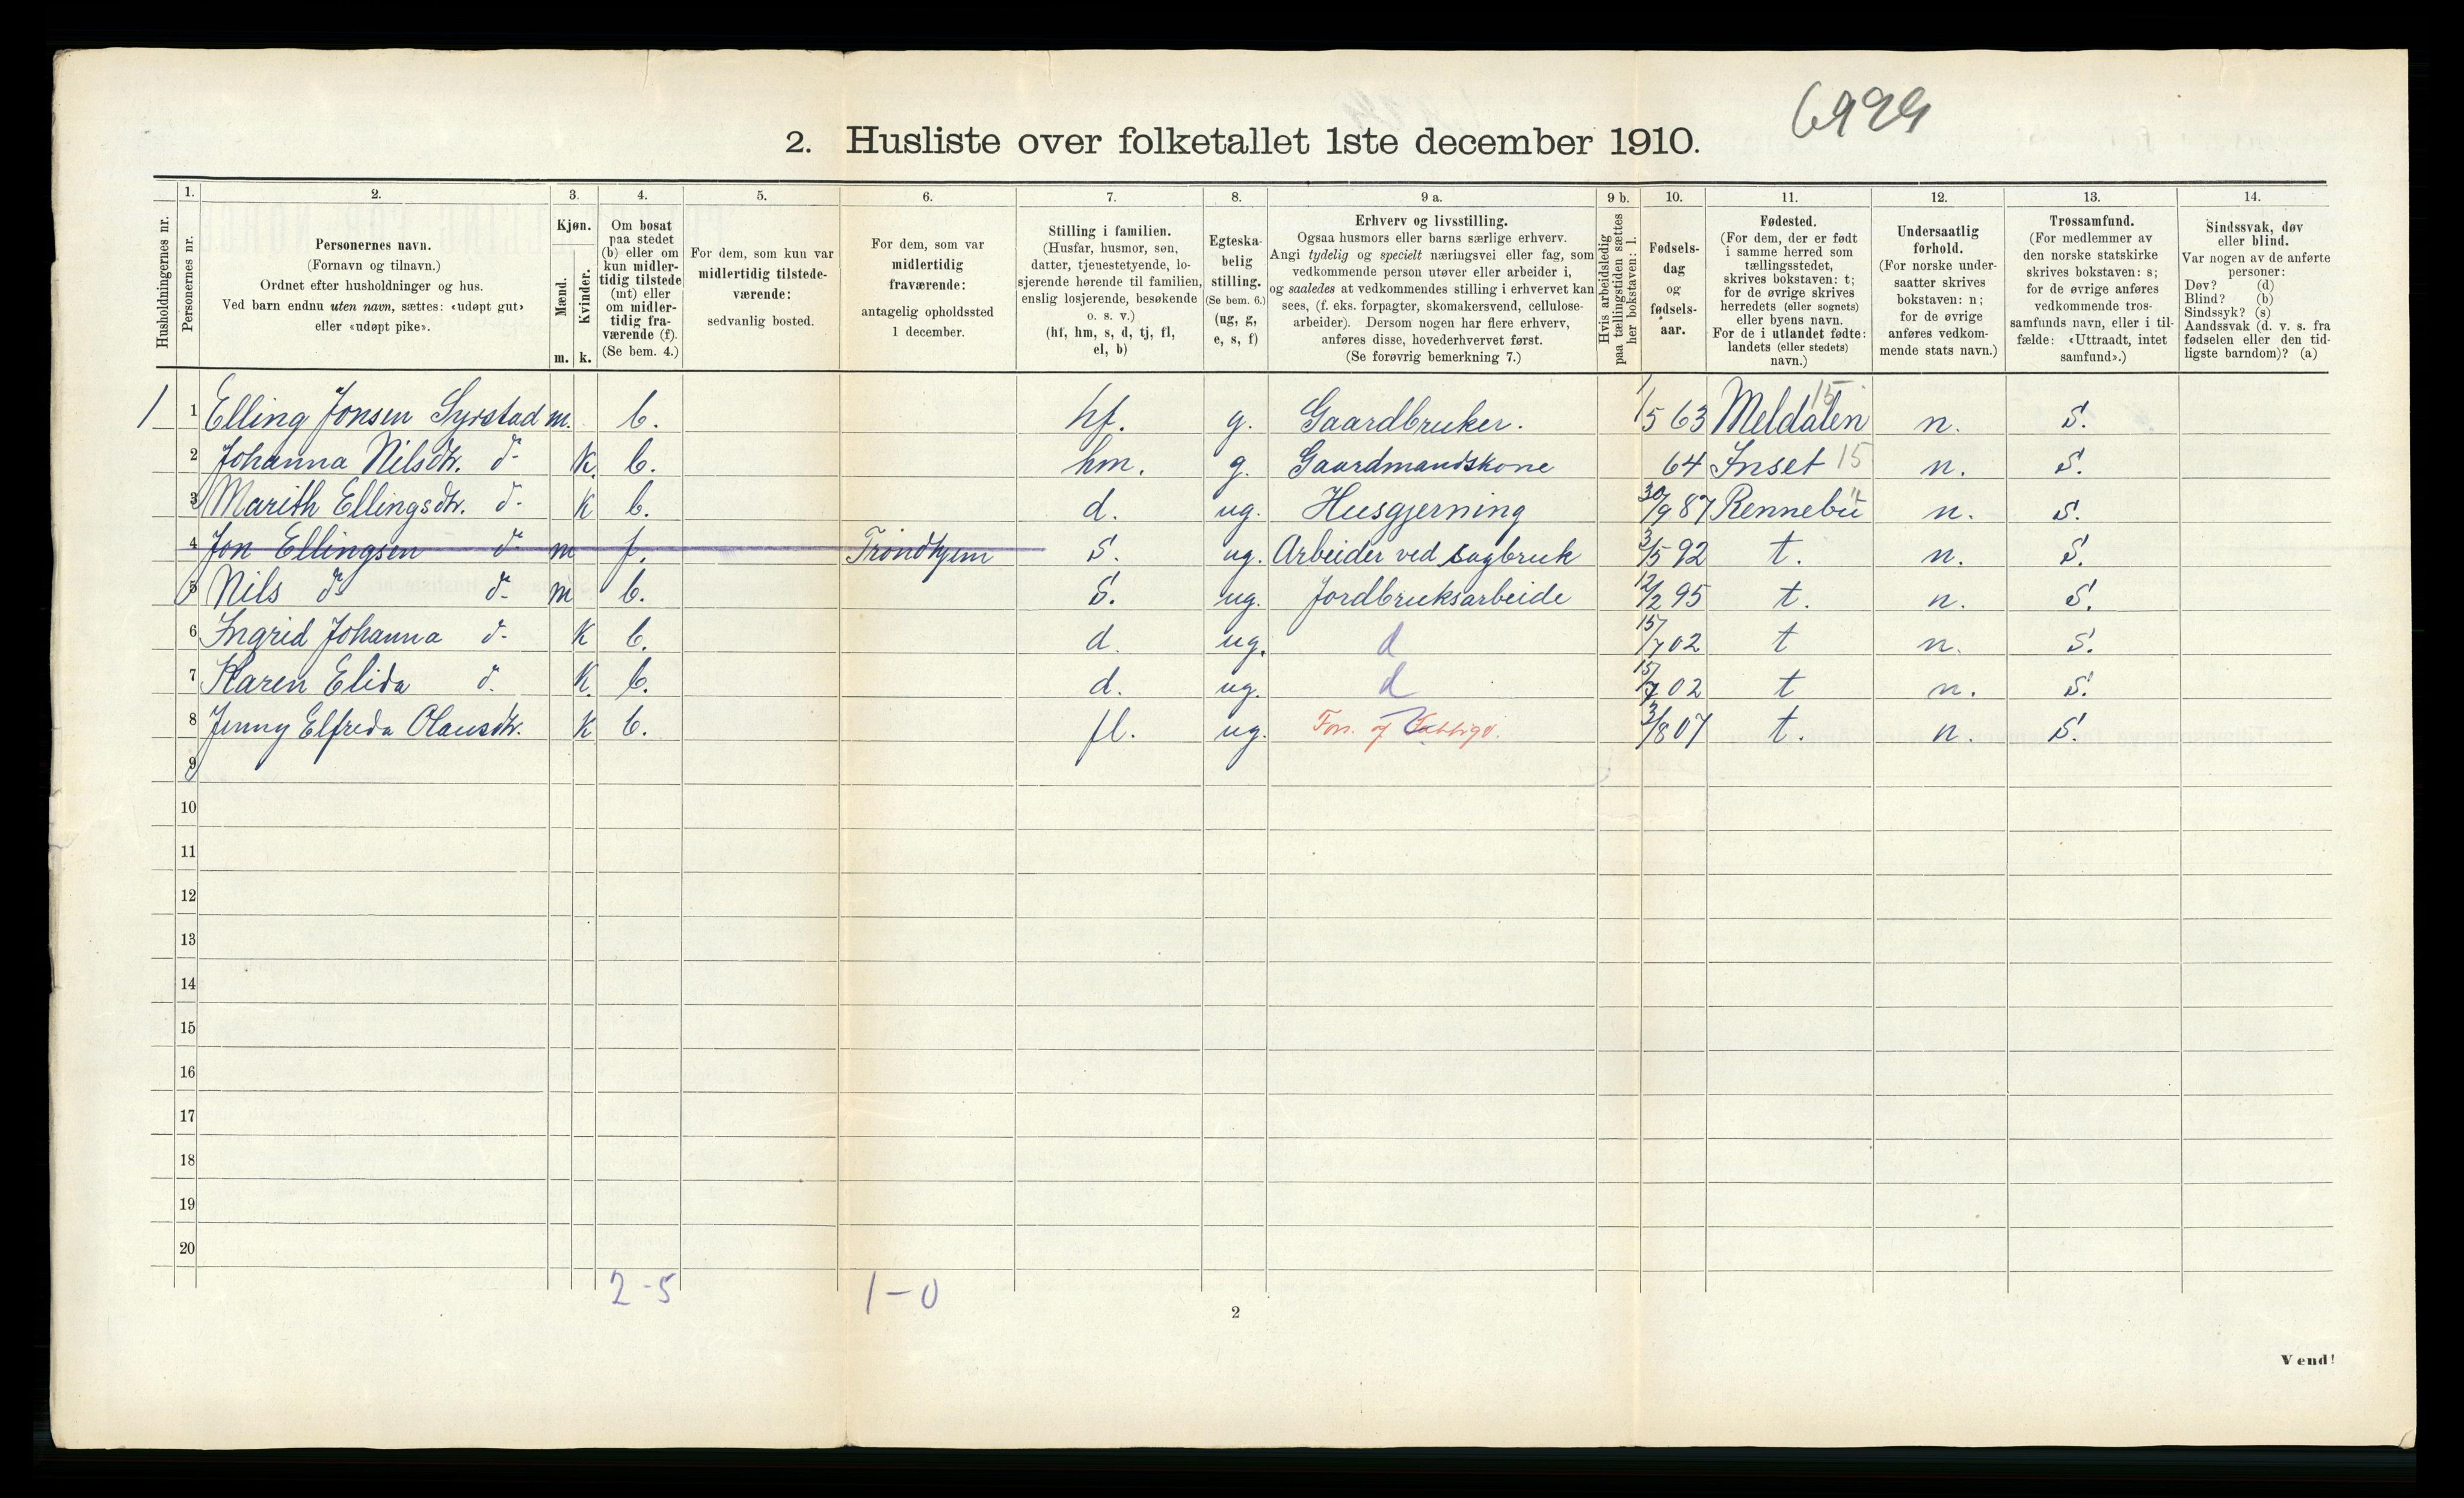 6999
2. Husliste over folketallet 1ste december 1910.
Husholdningernes nr.
1. Personernes nr.
2. Personernes navn.
(Fornavn og tilnavn.)
Ordnet efter husholdninger og hus.
Ved barn endnu uten navn, sættes: «udøpt gut»
eller «udøpt pike».
3. Kjøn.
Mænd. m.
Kvinder. k.
4. Om bosat
paa stedet
(b) eller om
kun midler-
tidig tilstede
(mt) eller
om midler-
tidig fra-
værende (f).
(Se bem. 4.)
5. For dem, som kun var
midlertidig tilstede-
værende:
sedvanlig bosted.
6. For dem, som var
midlertidig
fraværende:
antagelig opholdssted
1 december.
7. Stilling i familien.
(Husfar, husmor, søn,
datter, tjenestetyende, lo-
sjerende hørende til familien,
enslig losjerende, besøkende
o. s. v.)
(hf, hm, s, d, tj, fl,
el, b)
8. Egteska-
belig
stilling.
(Se bem. 6.)
(ug, g,
e, s, f)
9 a. Erhverv og livsstilling.
Ogsaa husmors eller barns særlige erhverv.
Angi tydelig og specielt næringsvei eller fag, som
vedkommende person utøver eller arbeider i,
og saaledes at vedkommendes stilling i erhvervet kan
sees, (f. eks. forpagter, skomakersvend, cellulose-
arbeider). Dersom nogen har flere erhverv,
anføres disse, hovederhvervet først.
(Se forøvrig bemerkning 7.)
9 b. Hvis arbeidsledig
paa tællingstiden sættes
her bokstaven: l.
10. Fødsels-
dag
og
fødsels-
aar.
11. Fødested.
(For dem, der er født
i samme herred som
tællingsstedet,
skrives bokstaven: t;
for de øvrige skrives
herredets (eller sognets)
eller byens navn.
For de i utlandet fødte:
landets (eller stedets)
navn.)
12. Undersaatlig
forhold.
(For norske under-
saatter skrives
bokstaven: n;
for de øvrige
anføres vedkom-
mende stats navn.)
13. Trossamfund.
(For medlemmer av
den norske statskirke
skrives bokstaven: s;
for de øvrige anføres
vedkommende tros-
samfunds navn, eller i til-
fælde: «Uttraadt, intet
samfund».)
14. Sindssvak, døv
eller blind.
Var nogen av de anførte
personer:
Døv? (d)
Blind? (b)
Sindssyk? (s)
Aandssvak (d. v. s. fra
fødselen eller den tid-
ligste barndom)? (a)
1 1 Elling Jonsen Syrstad m. b. hf. g. Gaardbruker. 1/5 63 Meldalen 15 n. S.
2 Johanna Nilsdtr. d- K. b. hm. g. Gaardmandskone 64 Inset 15 n. S.
3 Marith Ellingsdtr. d- K b. d. ug. Husgjerning 30/9 87 Rennebu n. S.
4 Jon Ellingsen d- m f. Trondhjem S. ug. Arbeider ved sagbruk 3/5 92 t. n. S.
5 Nils d- d- m b. S. ug. Jordbruksarbeide 12/2 95 t. n. S.
6 Ingrid Johanna d- K b. d. ug. d 15/7 02 t n. S.
7 Karen Elida d. K. b. d. ug. d 15/7 02 t n. S.
8 Jenny Elfreda Olausdtr. K b. fl. ug. Fors. af 3/8 07 t. n. S.
9
10
11
12
13
14
15
16
17
18
19
20
2-5 1-0
2
Vend!